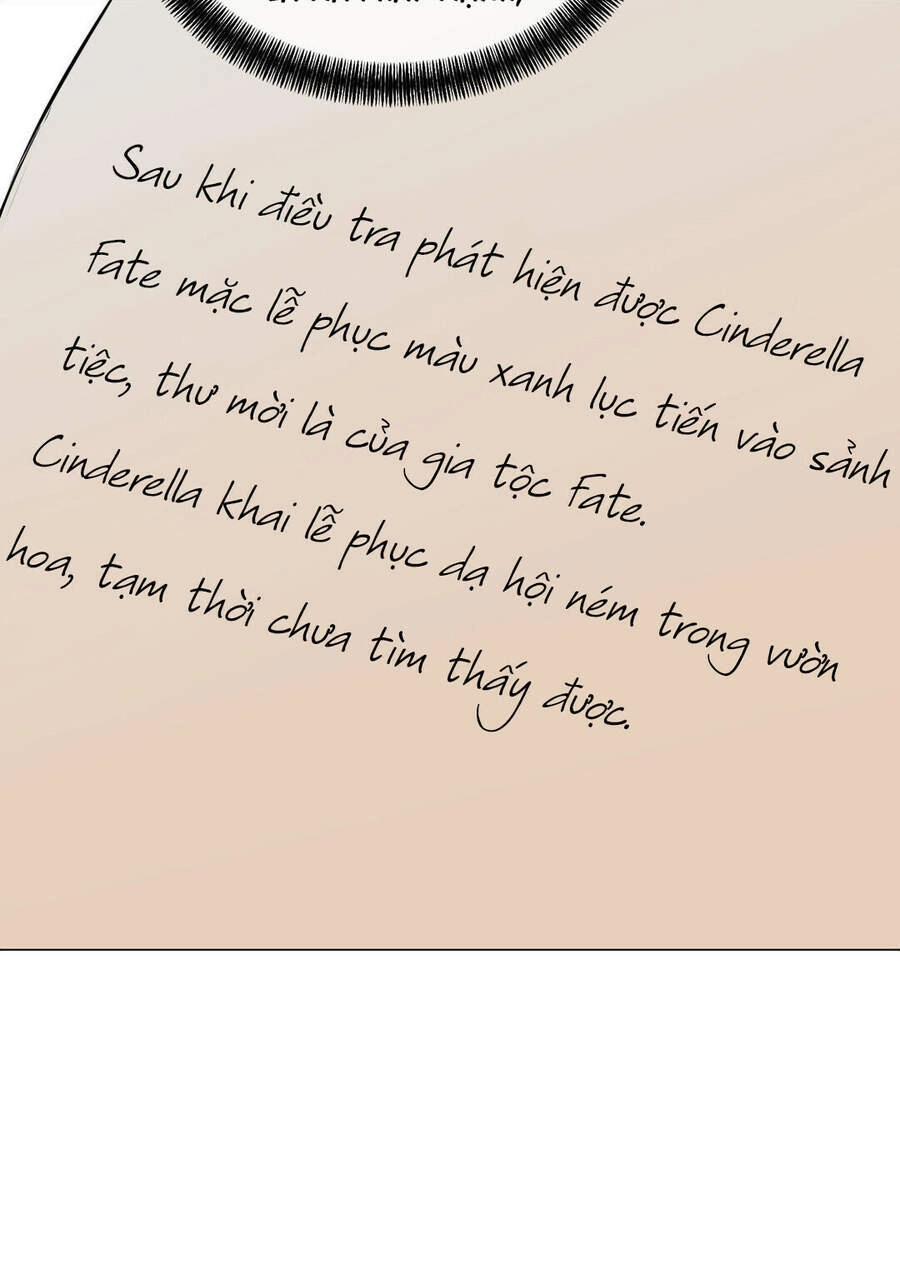 Sau khi điều tra phát hiện được Cinderella
Fate mặc lễ phục màu xanh lục tiến vào sảnh
tiệc, thư mời là của gia tộc Fate.
Cinderella khai lễ phục dạ hội ném trong vườn
hoa, tạm thời chưa tìm thấy được.